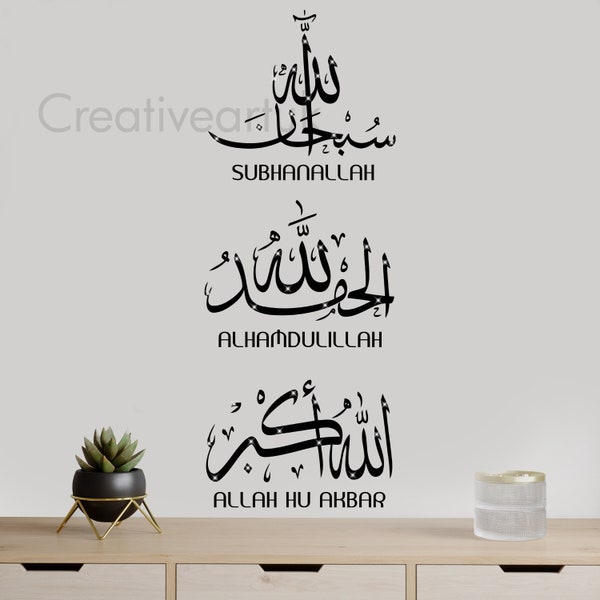 سُبْحَانَ اللّٰه
SUBHANALLAH
الحَمْدُ لِلّٰه
ALHAMDULILLAH
اللّٰهُ أَكْبَر
ALLAH HU AKBAR